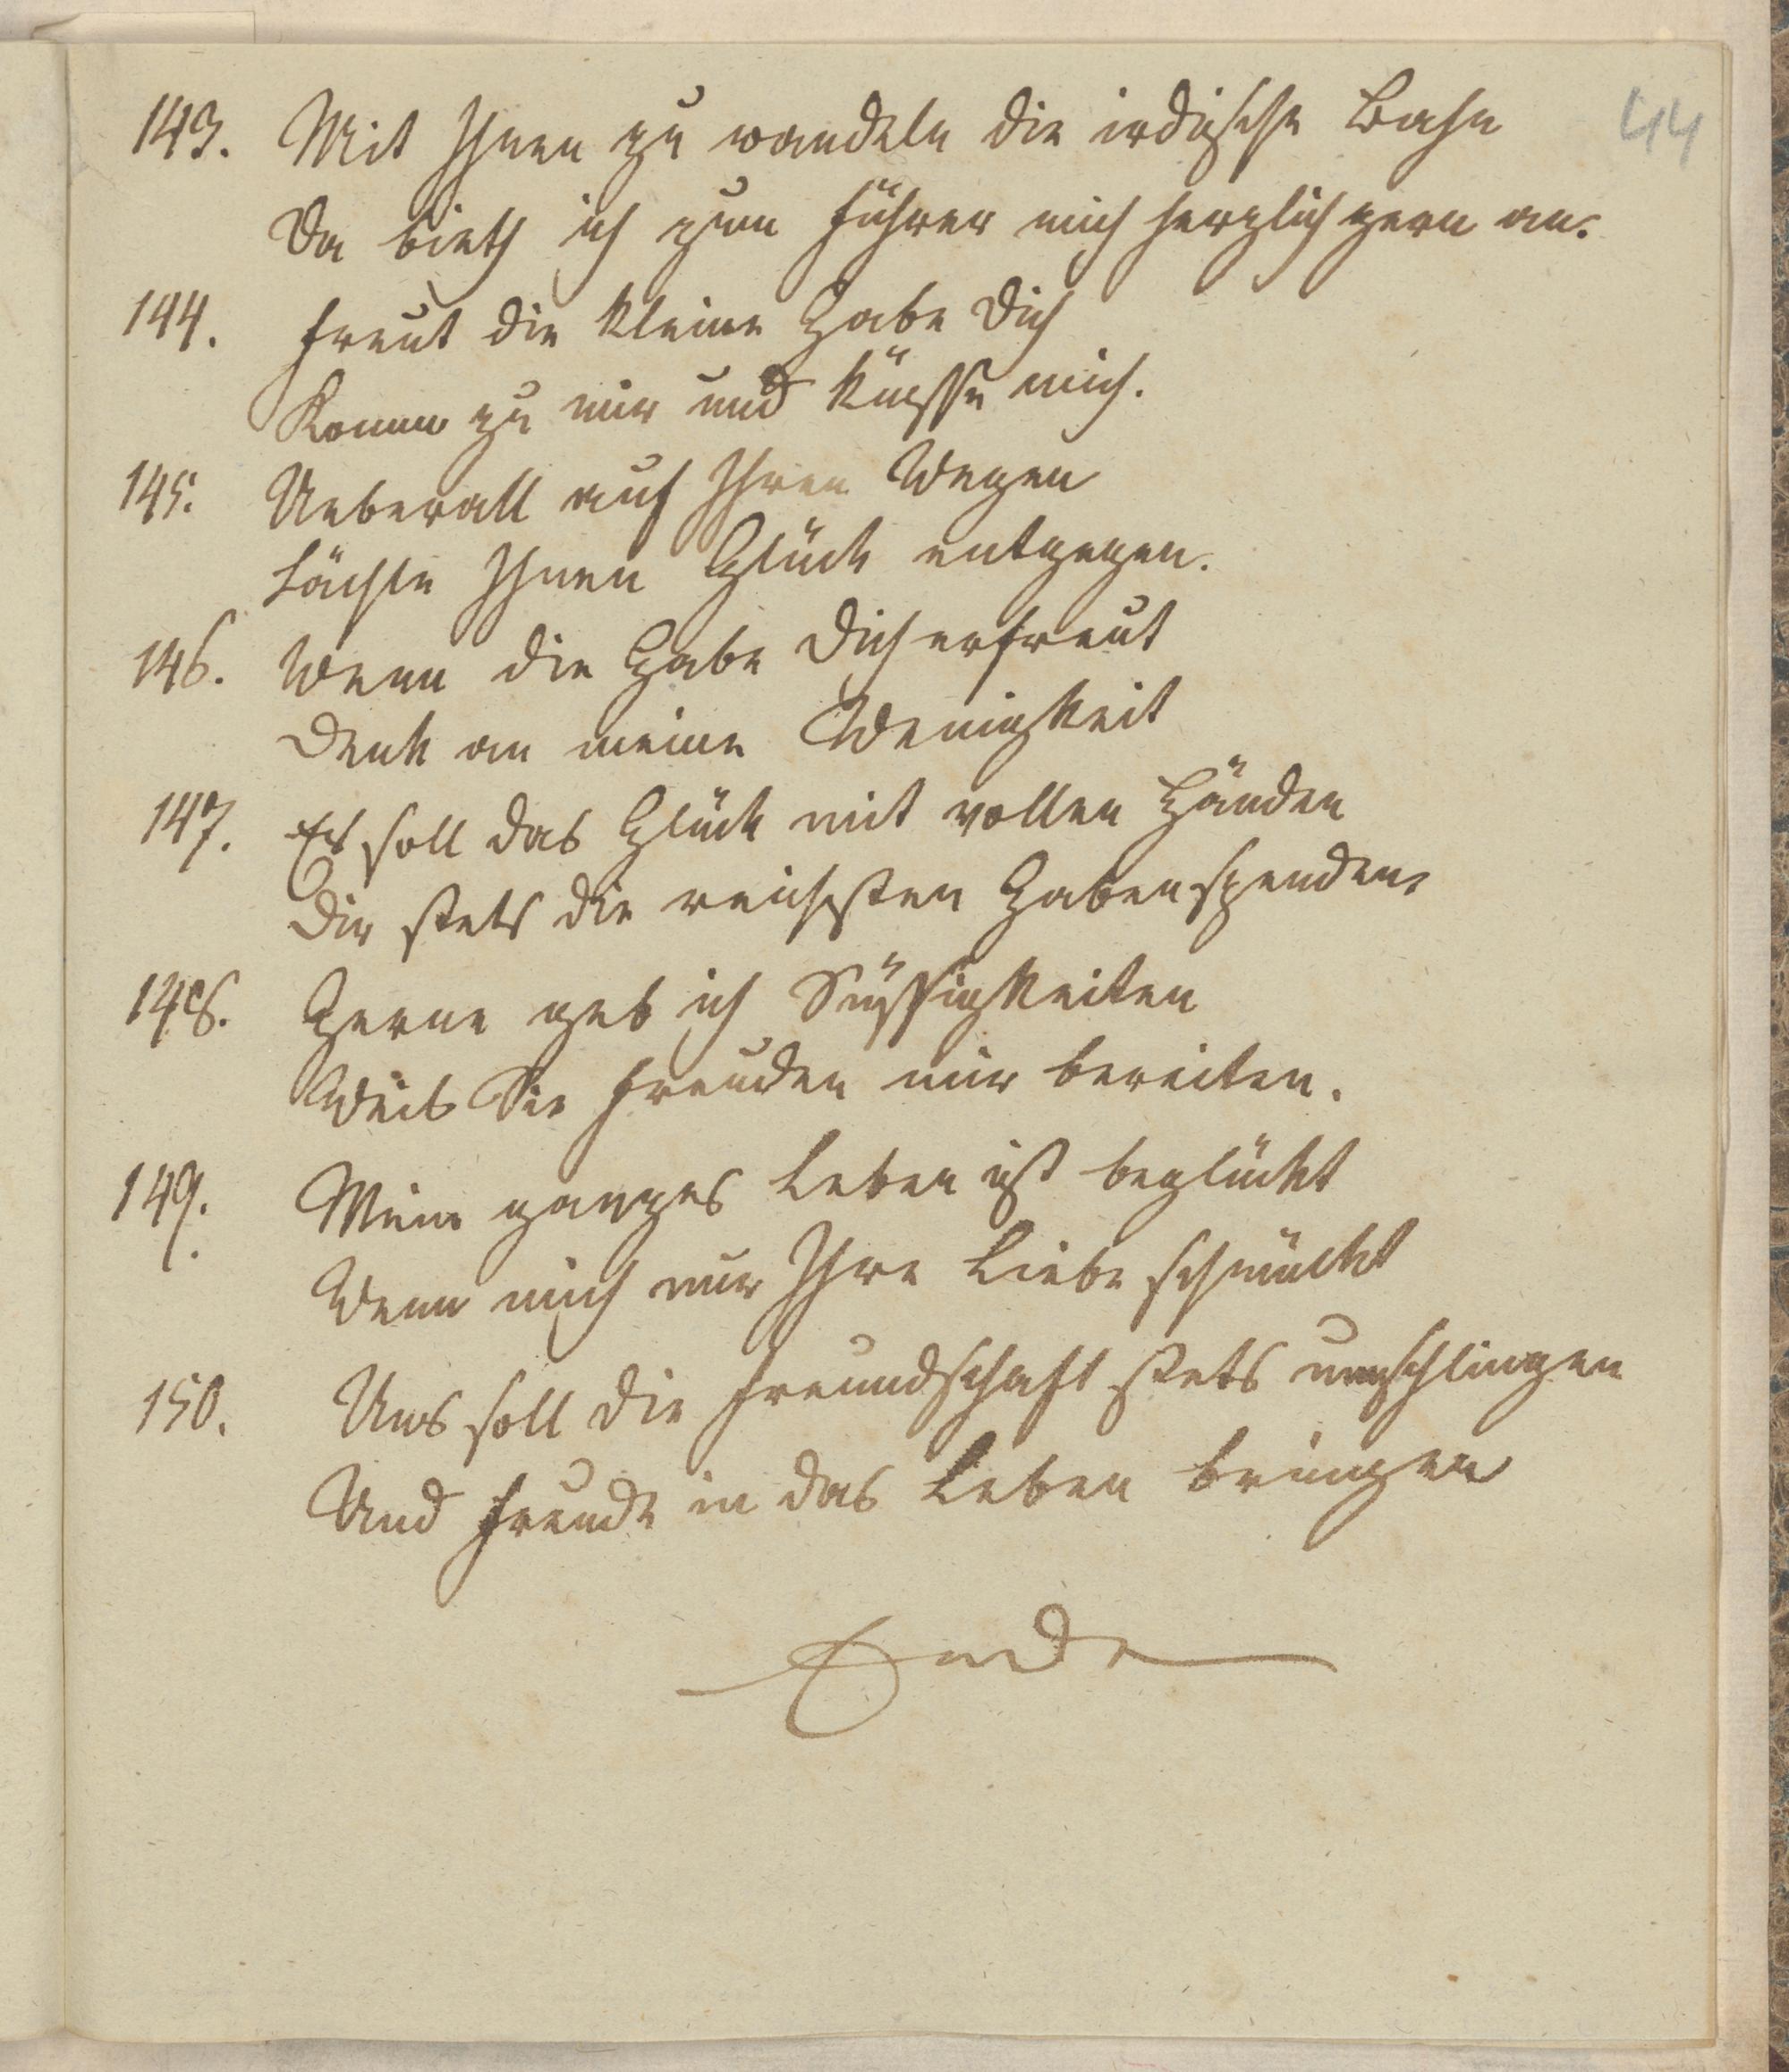 44
143. Mit Ihnen zu wandeln die irdische Bahn
Da bieth ich zum Führer mich herzlich gern an.
144. Freut die kleine Gabe Dich
Komm zu mir und küsse mich.
145. Ueberall auf Ihren Wegen
Lächle Ihnen Glück entgegen.
146. Wenn die Gabe Dich erfreut
Denk an meine Wenigkeit
147. Es soll das Glück mit vollen Händen
Dir stets die reichsten Gaben spenden.
148. Gerne geb ich Süssigkeiten
Weil Sie Freuden mir bereiten.
149. Mein ganzes Leben ist beglückt
Wenn mich nur Ihre Liebe schmückt
150. Uns soll die Freundschaft stets umschlingen
Und Freude in das Leben bringen
Ende